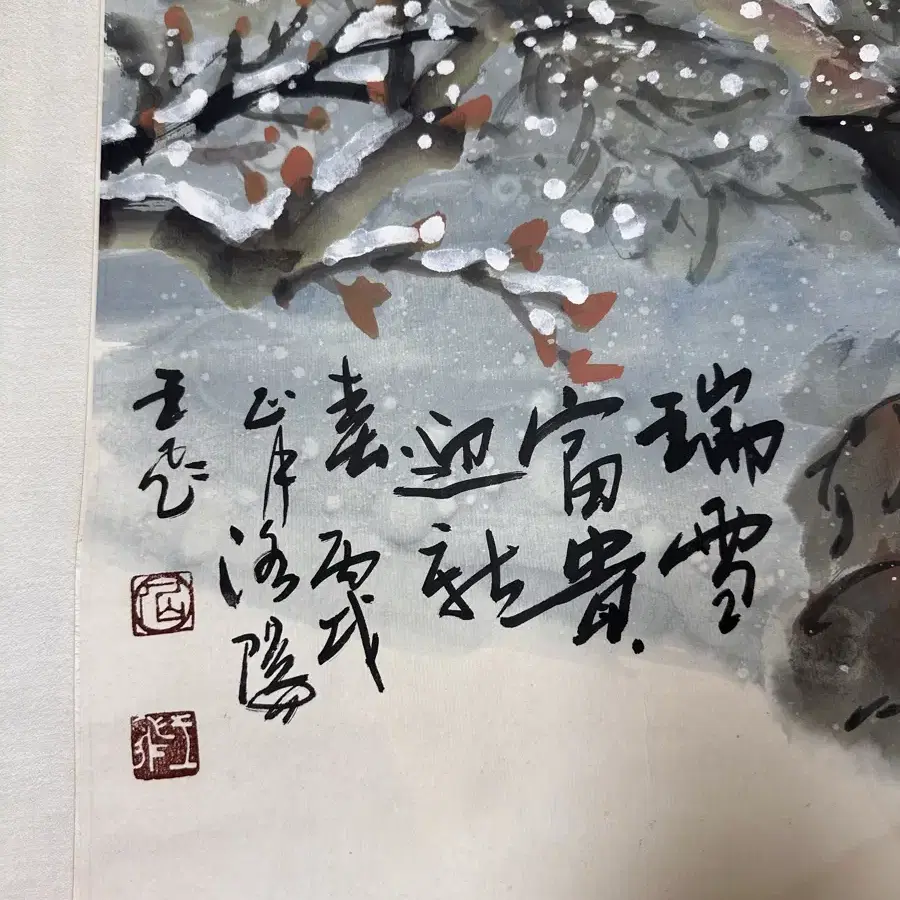 瑞雪
富貴
迎新
春 丙戌
正月洛陽
王